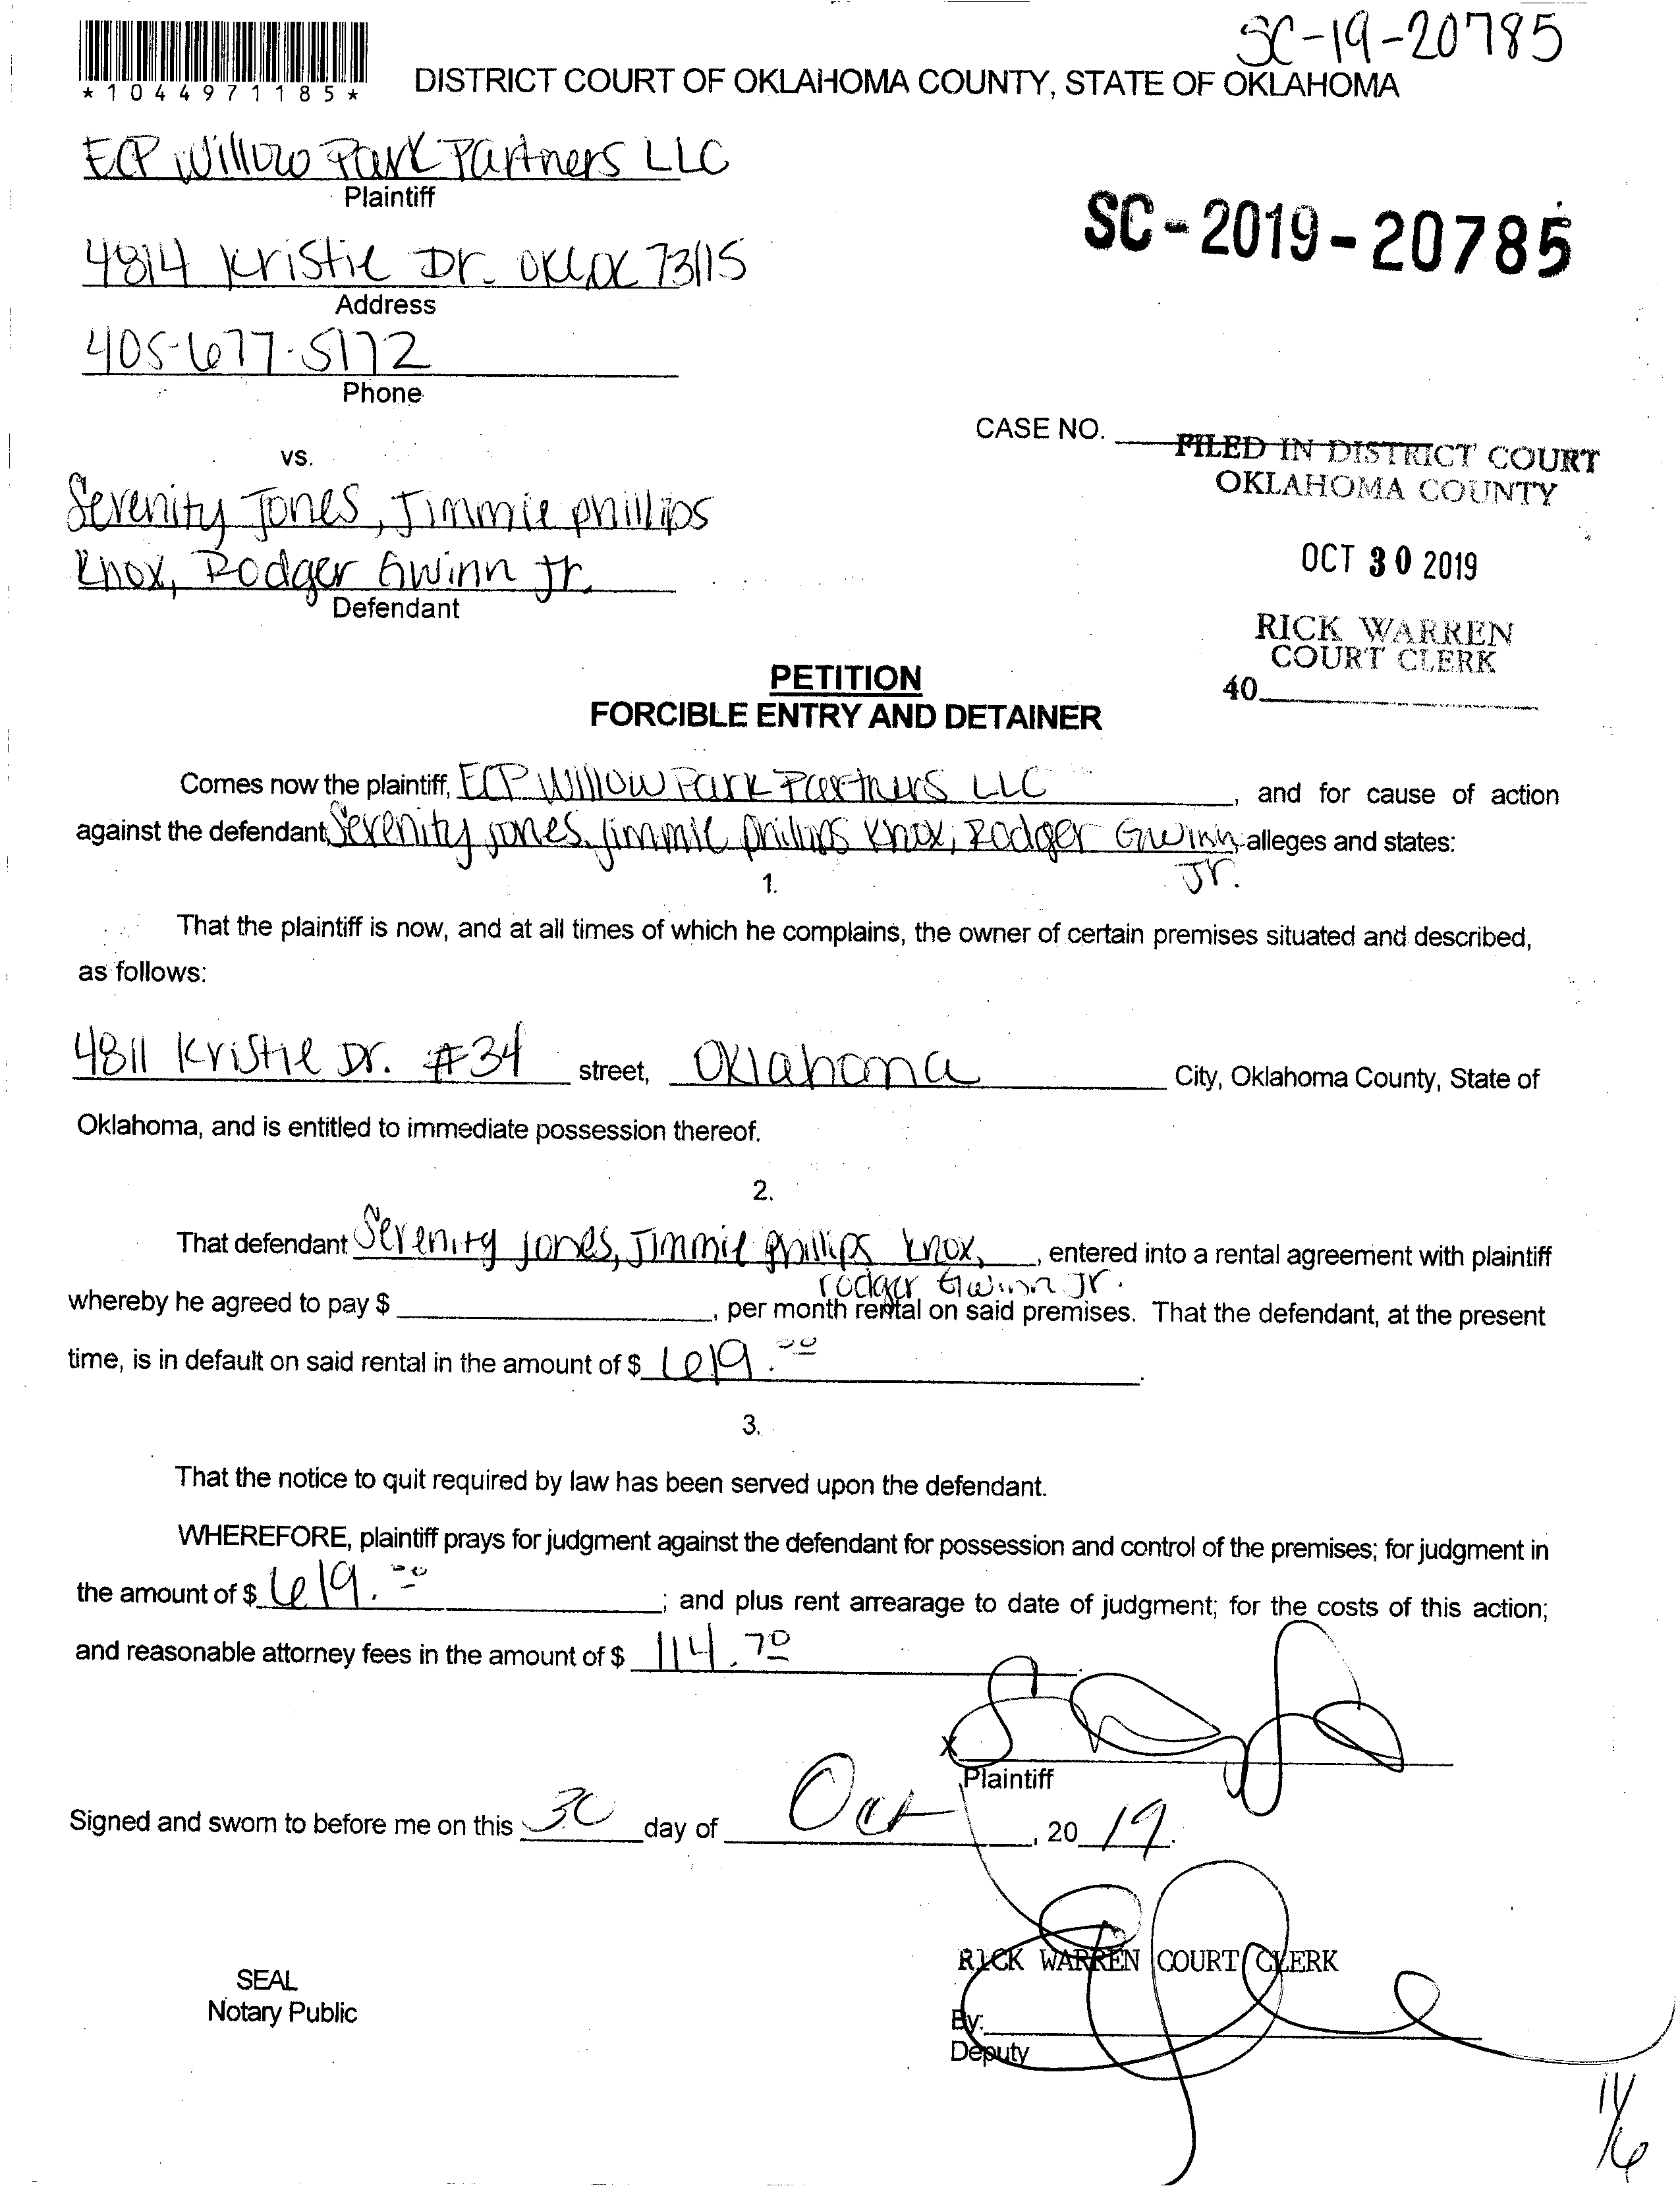 SC-19-20785
*1044971185*
DISTRICT COURT OF OKLAHOMA COUNTY, STATE OF OKLAHOMA
ECP Willow Park Partners LLC
Plaintiff
SC-2019-20785
4814 Kristie Dr. OKC OK 73115
Address
405-677-5172
Phone
CASE NO.
FILED IN DISTRICT COURT
OKLAHOMA COUNTY
vs.
Serenity Jones, Jimmie phillips
Knox, Rodger Gwinn Jr.
Defendant
OCT 30 2019
RICK WARREN
COURT CLERK
40
PETITION
FORCIBLE ENTRY AND DETAINER
Comes now the plaintiff, ECP Willow Park Partners LLC, and for cause of action
against the defendant Serenity jones, jimmie phillips Knox, Rodger Gwinn alleges and states:
Jr.
1.
That the plaintiff is now, and at all times of which he complains, the owner of certain premises situated and described,
as follows:
4811 Kristie Dr. #34 street, Oklahoma City, Oklahoma County, State of
Oklahoma, and is entitled to immediate possession thereof.
2.
That defendant Serenity jones, Jimmie phillips knox, , entered into a rental agreement with plaintiff
rodger Gwinn Jr.
whereby he agreed to pay $ , per month rental on said premises. That the defendant, at the present
time, is in default on said rental in the amount of $ 619.00.
3.
That the notice to quit required by law has been served upon the defendant.
WHEREFORE, plaintiff prays for judgment against the defendant for possession and control of the premises; for judgment in
the amount of $ 619.00; and plus rent arrearage to date of judgment; for the costs of this action;
and reasonable attorney fees in the amount of $ 114.70.
X
Plaintiff
Signed and sworn to before me on this 30 day of Oct, 20 19.
RICK WARREN COURT CLERK
SEAL
Notary Public
By:
Deputy
11/6